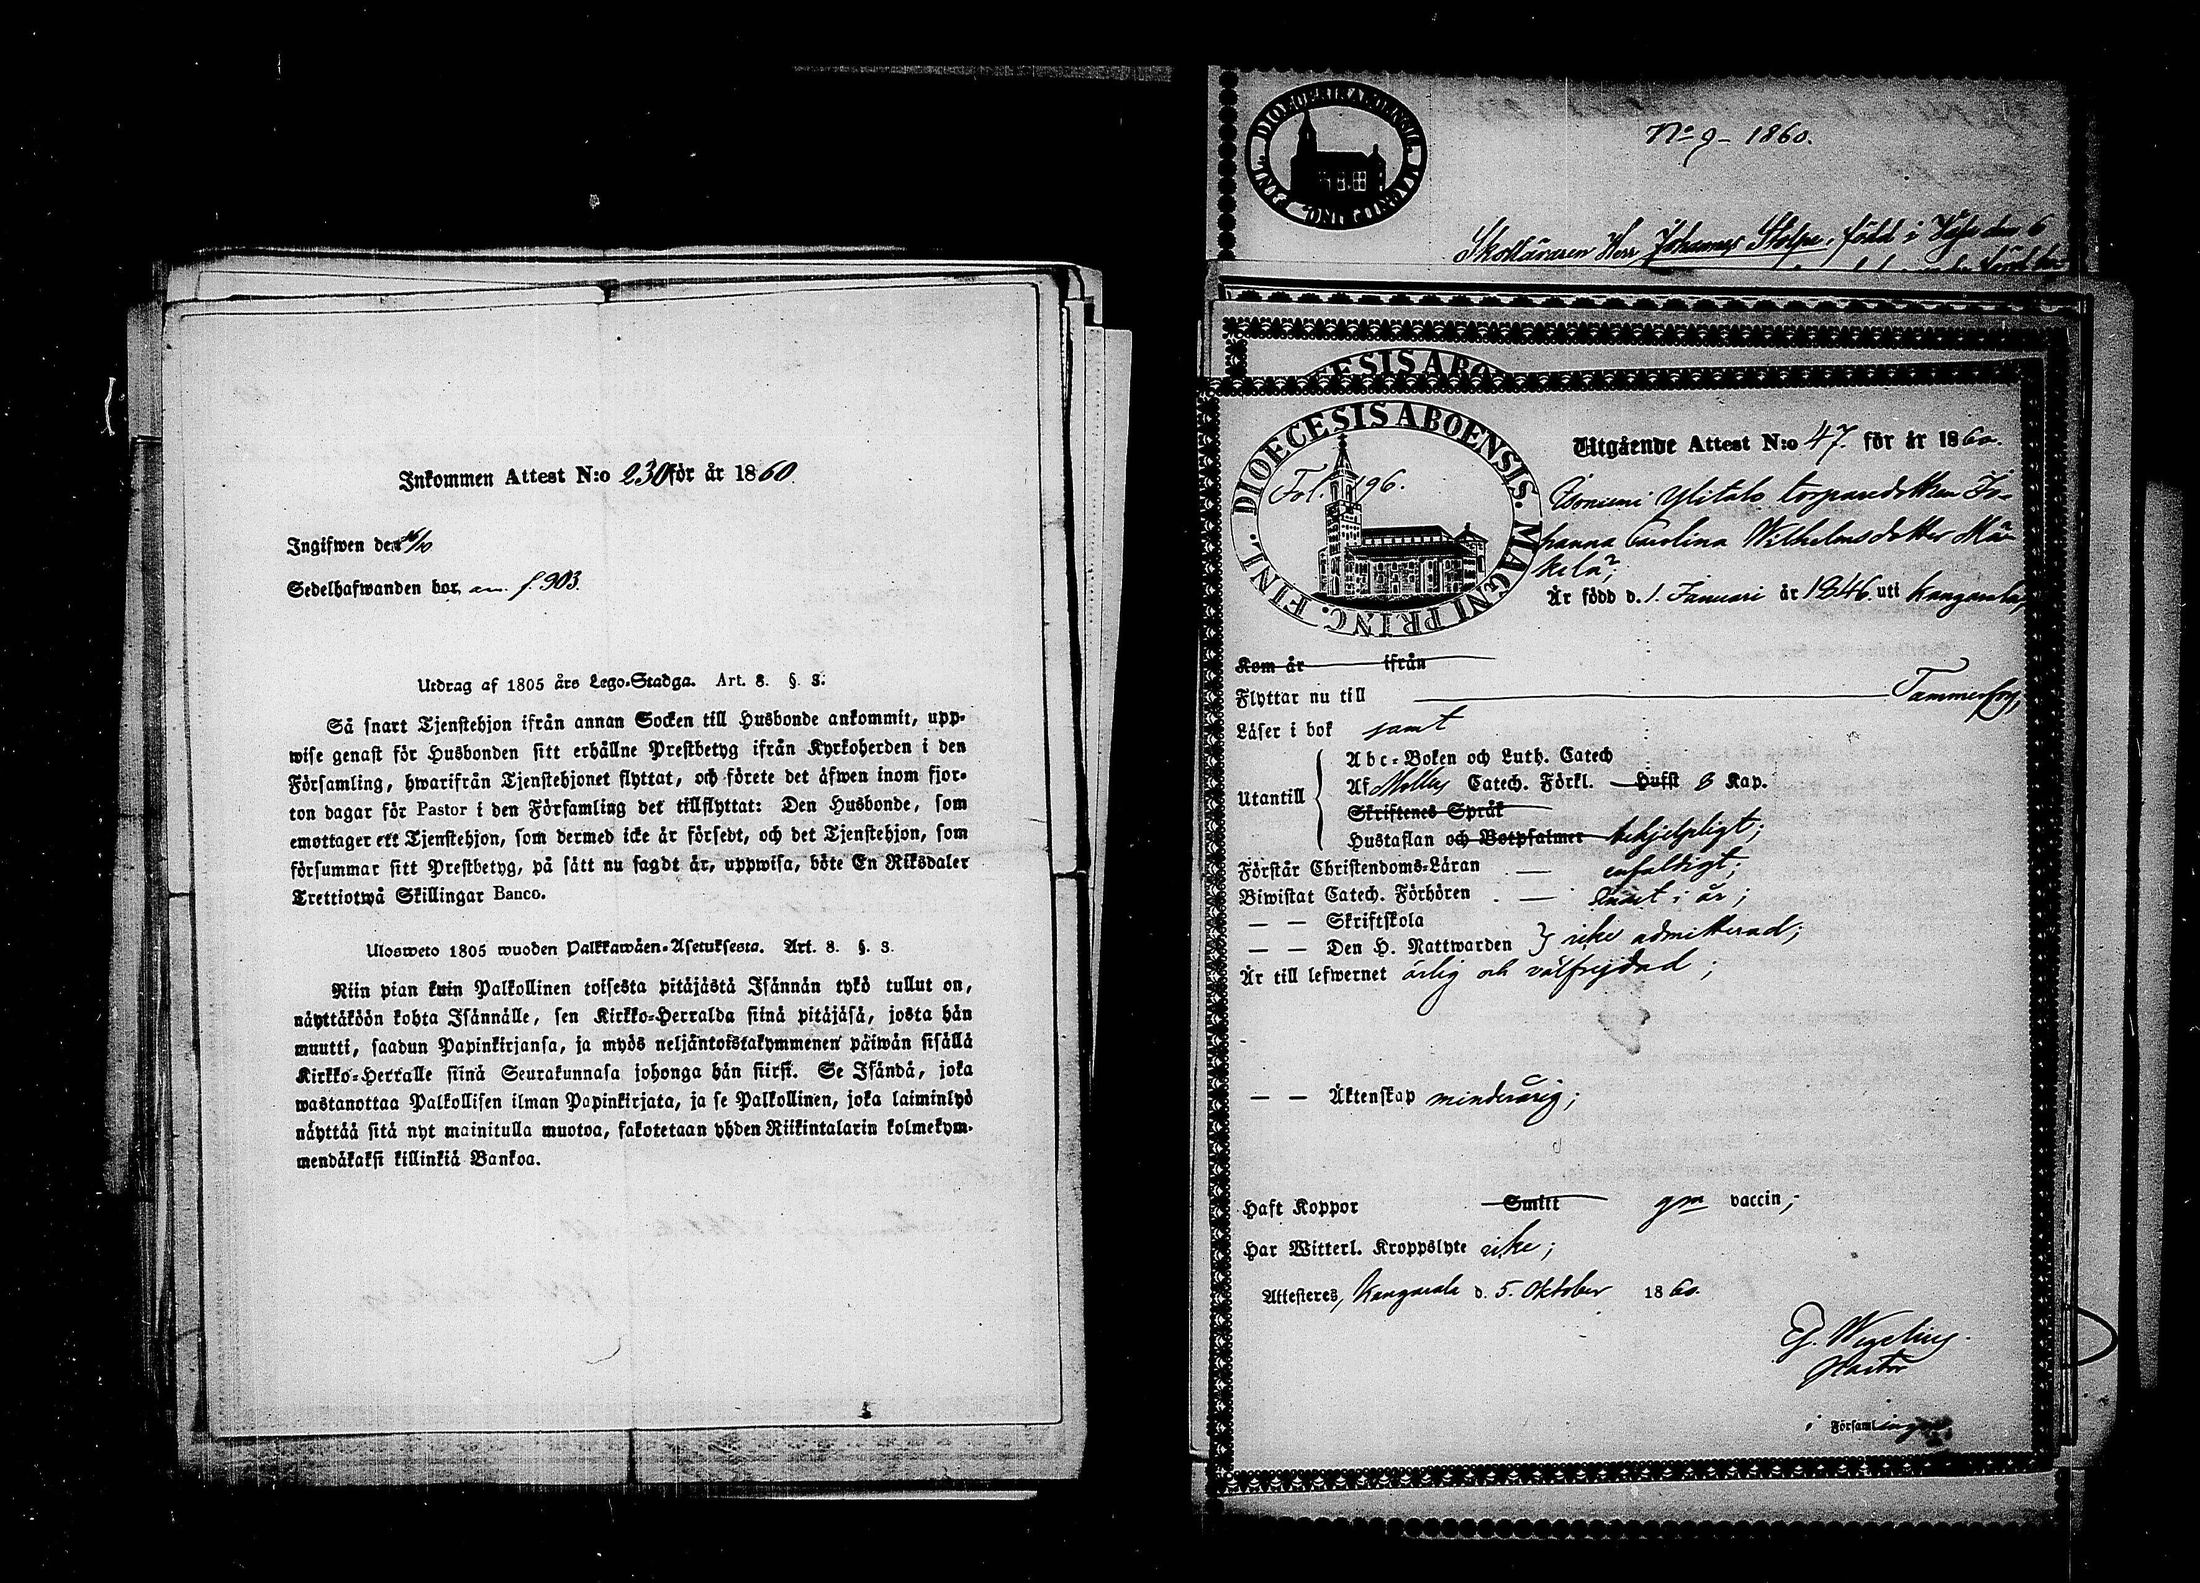 Inkommen Attest N:o 230 för år 1860.
Ingifwen den 16/10
Sedelhafwanden bor, an. f. 903.
Utdrag af 1805 års Lego-Stadga. Art. 8. §. 3.
Så snart Tjenstehjon ifrån annan Socken till Husbonde ankommit, upp-
wise genast för Husbonden sitt erhållne Prestbetyg ifrån Kyrkoherden i den
Församling, hwarifrån Tjenstehjonet flyttat, och förete det åfwen inom fjor-
ton dagar för Pastor i den Församling det tillflyttat: Den Husbonde, som
emottager ett Tjenstehjon, som dermed icke är försedt, och det Tjenstehjon, som
försummar sitt Prestbetyg, på sätt nu sagdt är, uppwisa, böte En Riksdaler
Trettiotwå Skillingar Banco.
Ulosweto 1805 wuoden Palkkawäen-Asetuksesta. Art. 8. §. 3.
Niin pian kuin Palkollinen toisesta pitäjästä Isännän tykö tullut on,
näyttäköön kohta Isännälle, sen Kirkko-Herralda siinä pitäjäsä, josta hän
muutti, saadun Papinkirjansa, ja myös neljäntoistakymmenen päiwän sisällä
Kirkko-Herralle siinä Seurakunnasa johonga hän siirsi. Se Isändä, joka
wastanottaa Palkollisen ilman Papinkirjata, ja se Palkollinen, joka laiminlyö
näyttää sitä nyt mainitulla muotoa, sakotetaan yhden Riikintalarin kolmekym-
mendäkaksi killinkiä Bankoa.
No 9 - 1860.
Skolläraren Herr Johannes Stolpe, född i den 6
DIOECESIS ABOENSIS. MAGNI PRINC. FINL.
Fol. 196.
Utgående Attest N:o 47. för år 1860.
Ylitalo torparedottren Jo-
hanna Carolina Wilhelmsdotter Mä-
kelä,
Är född d. 1. Januari år 1846. uti Kangasala,
Kom år ifrån
Flyttar nu till Tammerfors,
Läser i bok samt
Utantill
Abc-Boken och Luth. Catech
Af Catech. Förkl. Hufst 8 Kap.
Skriftenes Språk
Hustaflan och Botpsalmer behjelpligt;
Förstår Christendoms-Läran — enfaldigt;
Biwistat Catech. Förhören — i år;
— — Skriftskola
— — Den H. Nattwarden } icke admitterad;
Är till lefwernet ärlig och välfrejdad;
— — Äktenskap minderårig;
Haft Koppor Smitt gm vaccin,
Har Witterl. Kroppslyte icke;
Attesteras, Kangasala d. 5. Oktober 1860.
G. Wegelius.
Pastor
i Församlingen